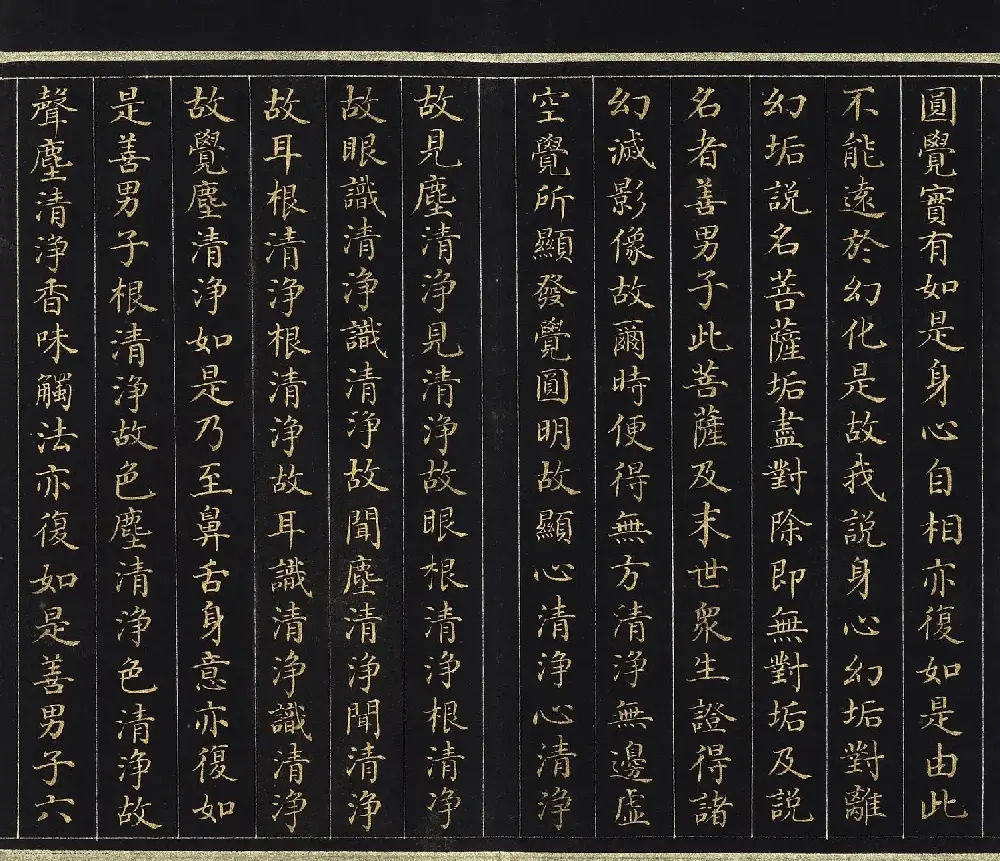 圓覺實有如是身心自相亦復如是由此
不能遠於幻化是故我說身心幻垢對離
幻垢說名菩薩垢盡對除即無對垢及說
名者善男子此菩薩及末世眾生證得諸
幻滅影像故爾時便得無方清淨無邊虛
空覺所顯發覺圓明故顯心清淨心清淨
故見塵清淨見清淨故眼根清淨根清淨
故眼識清淨識清淨故聞塵清淨聞清淨
故耳根清淨根清淨故耳識清淨識清淨
故覺塵清淨如是乃至鼻舌身意亦復如
是善男子根清淨故色塵清淨色清淨故
聲塵清淨香味觸法亦復如是善男子六